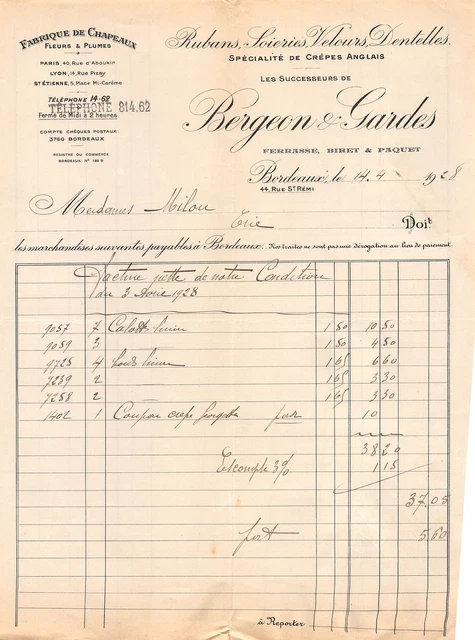 FABRIQUE DE CHAPEAUX
FLEURS & PLUMES
PARIS, 40, Rue d'Aboukir
LYON, 14, Rue Pizay
ST ÉTIENNE, 5, Place Mi-Carême
TÉLÉPHONE 14-62
TÉLÉPHONE 814.62
Fermé de Midi à 2 heures.
COMPTE CHÈQUES POSTAUX
3760 BORDEAUX
REGISTRE DU COMMERCE
BORDEAUX
Rubans, Soieries, Velours, Dentelles.
SPÉCIALITÉ DE CRÊPES ANGLAIS
LES SUCCESSEURS DE
Bergeon & Gardes
FERRASSE, BIRET & PAQUET
Bordeaux, le 14.4 1928
44, RUE ST RÉMI
Mesdames Milou
Doit
les marchandises suivantes payables à Bordeaux. Nos traites ne sont pas une dérogation au lieu de paiement.
Facture nette de notre Condition
du 3 Avril 1928
9057 7 1 50 10 50
9059 3 1 50 4 50
9725 4 1 65 6 60
7239 2 1 65 3 30
7258 2 1 65 3 30
1402 1 Coupon crêpe Georgette pour 10
38 20
Escompte 3% 1 15
37 05
port 5 60
à Reporter